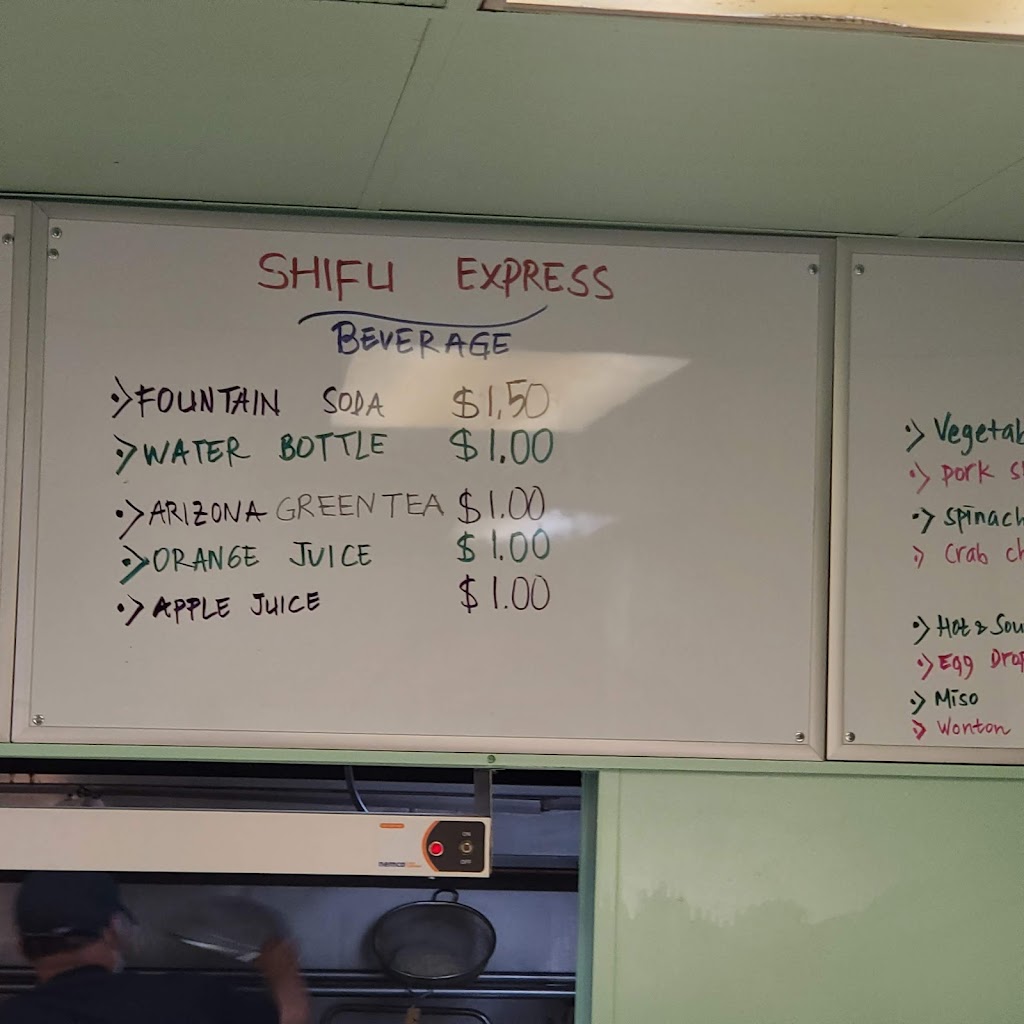 SHIFU EXPRESS
BEVERAGE
FOUNTAIN SODA $1,50
WATER BOTTLE $1.00
ARIZONA GREEN TEA $1.00
ORANGE JUICE $1.00
APPLE JUICE $1.00
Vegetab
pork
spinach
Crab
Hot & Sou
Egg Drop
Miso
Wonton
nemco
ON
OFF